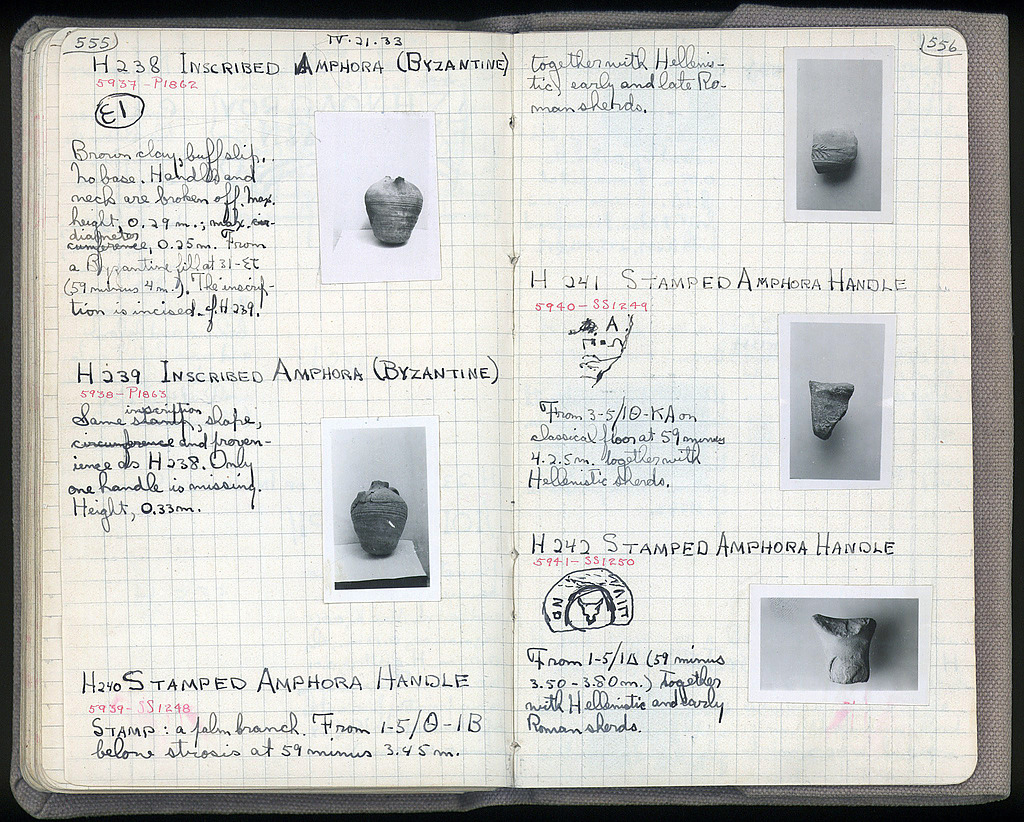 555
IV.21.33
H 238 INSCRIBED AMPHORA (BYZANTINE)
5937-P1862
Brown clay, buff slip.
No base. Handles and
neck are broken off. Max.
height, 0.29 m.; max. cir-
diameter
cumference, 0.25m. From
a Byzantine fill at 31-ΣΤ
(59 minus 4 m.). The inscrip-
tion is incised. cf. H 239.
H 239 INSCRIBED AMPHORA (BYZANTINE)
5938-P1863
inscription
Same stamp, shape,
circumference and proven-
ience as H 238. Only
one handle is missing.
Height, 0.33m.
H240 STAMPED AMPHORA HANDLE
5939-SS1248
STAMP: a palm branch. From 1-5/Θ-ΙΒ
below strosis at 59 minus 3.45 m.
556
together with Hellenis-
tic, early and late Ro-
man sherds.
H 241 STAMPED AMPHORA HANDLE
5940-SS1249
A.
From 3-5/ΙΘ-ΚΑ on
classical floor at 59 minus
4.25m. together with
Hellenistic sherds.
H 242 STAMPED AMPHORA HANDLE
5941-SS1250
From 1-5/ΙΔ (59 minus
3.50-3.80m.) together
with Hellenistic and early
Roman sherds.